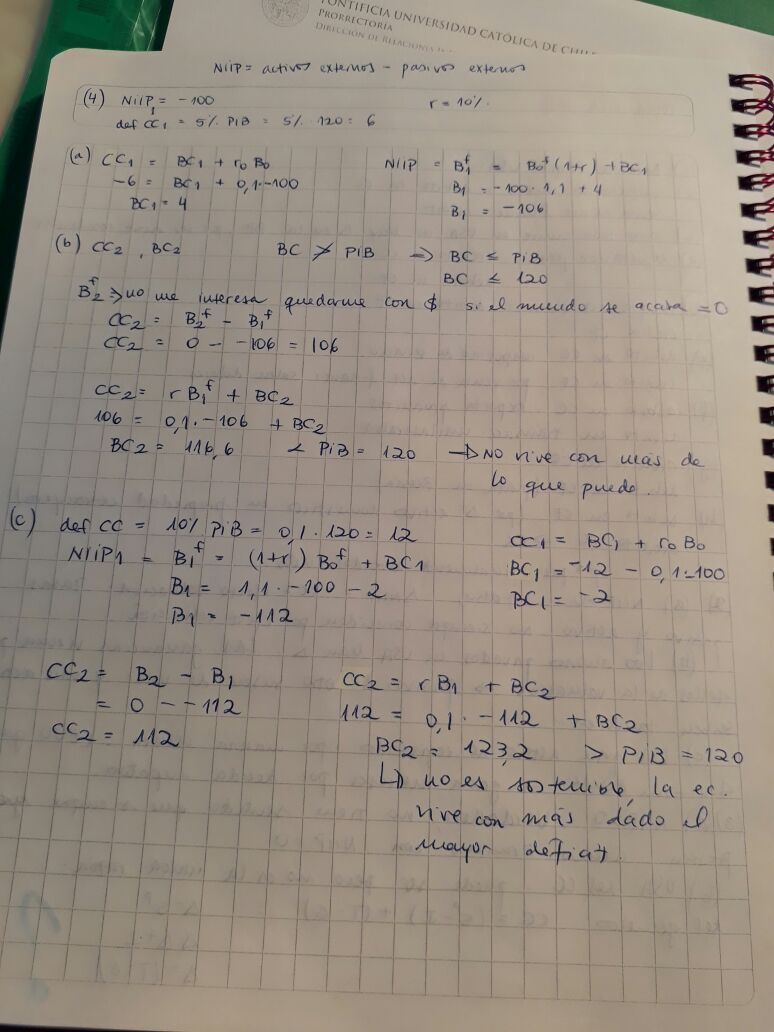 PONTIFICIA UNIVERSIDAD CATÓLICA DE CHILE
PRORRECTORÍA
DIRECCIÓN DE RELACIONES
NIIP = activos externos - pasivos externos
(4) NIIP = -100 r = 10%
def CC₁ = 5% PIB = 5% · 120 = 6
(a) CC₁ = BC₁ + r₀ B₀ NIIP₁ = B₁ᶠ = B₀ᶠ(1+r) + BC₁
-6 = BC₁ + 0,1·-100 B₁ = -100 · 1,1 + 4
BC₁ = 4 B₁ = -106
(b) CC₂ , BC₂ BC ≯ PIB => BC ≤ PIB
BC ≤ 120
B₂ᶠ => no me interesa quedarme con $ si el mundo se acaba = 0
CC₂ = B₂ᶠ - B₁ᶠ
CC₂ = 0 - -106 = 106
CC₂ = r B₁ᶠ + BC₂
106 = 0,1 · -106 + BC₂
BC₂ = 116,6 < PIB = 120 → NO vive con más de
lo que puede.
(c) def CC = 10% PIB = 0,1 · 120 = 12 CC₁ = BC₁ + r₀ B₀
NIIP₁ = B₁ᶠ = (1+r) B₀ᶠ + BC₁ BC₁ = -12 - 0,1·-100
B₁ = 1,1 · -100 - 2 BC₁ = -2
B₁ = -112
CC₂ = B₂ - B₁ CC₂ = r B₁ + BC₂
= 0 - -112 112 = 0,1 · -112 + BC₂
CC₂ = 112 BC₂ = 123,2 > PIB = 120
↳ no es sostenible, la ec.
vive con más dado el
mayor deficit.